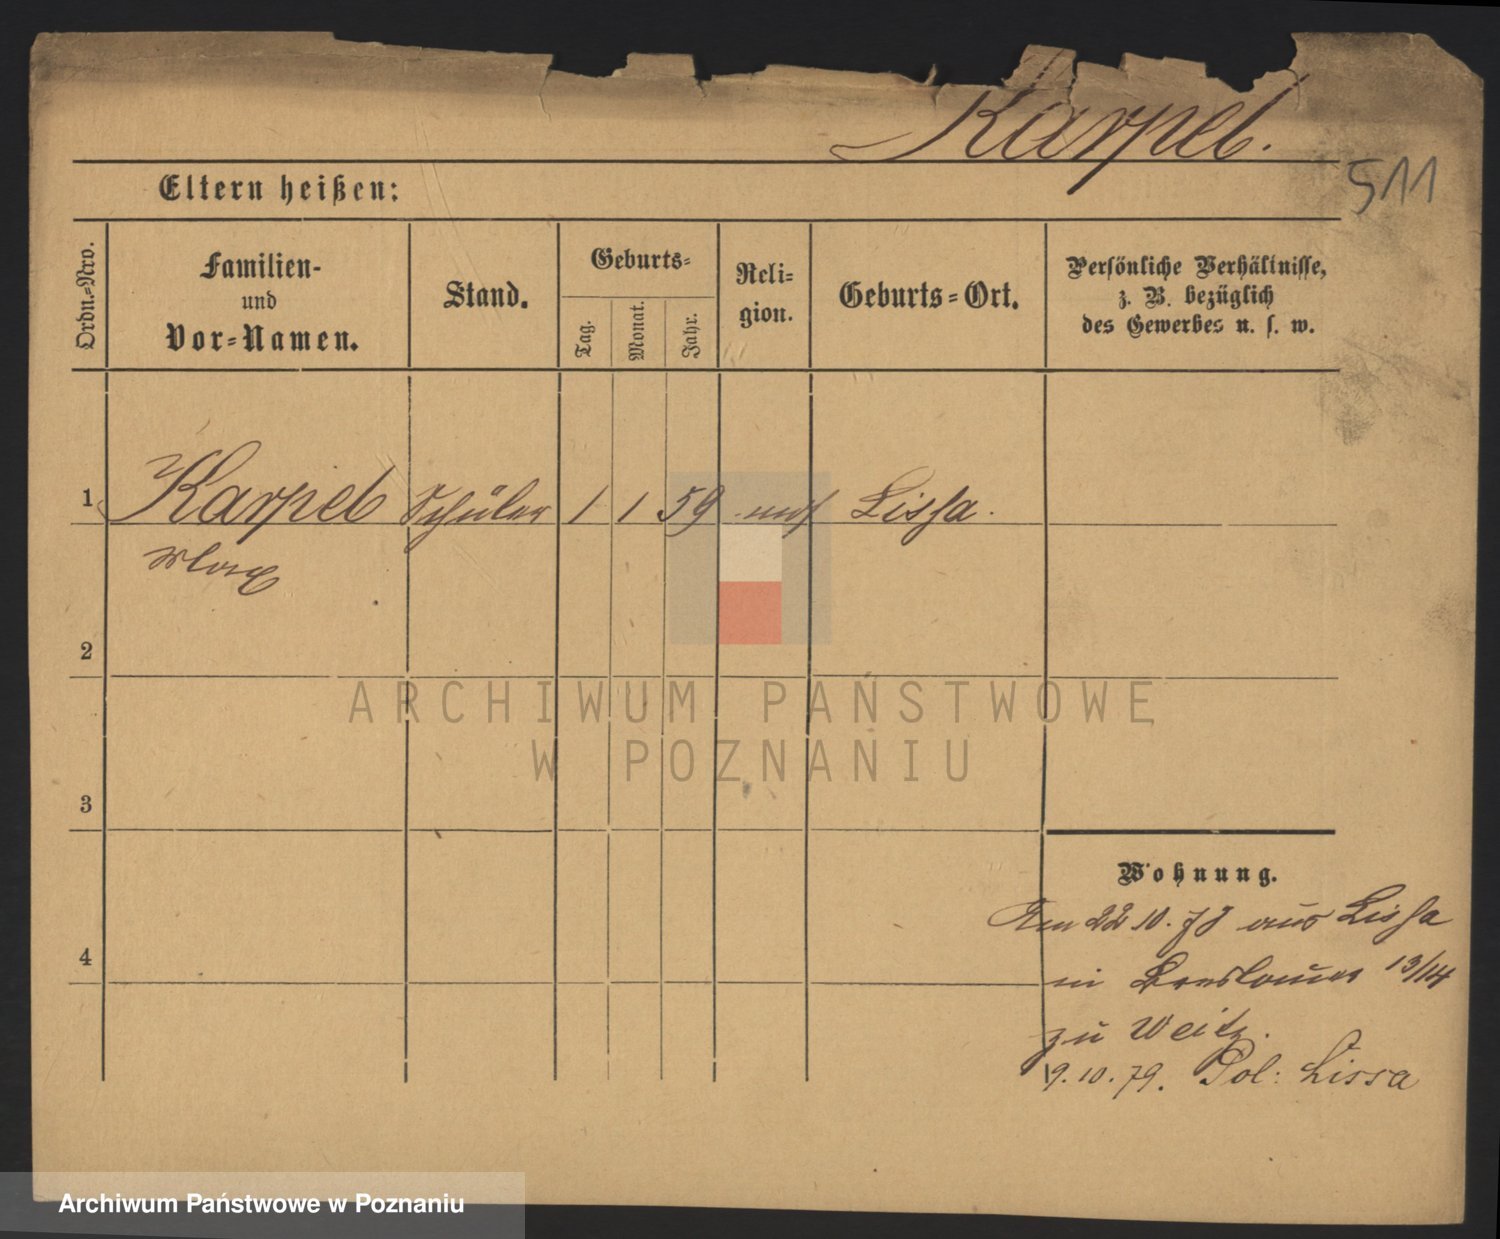 Karpel.
511
Eltern heißen:
Ordn.-Nro.
Familien-
und
Vor-Namen.
Stand.
Geburts-
Tag.
Monat.
Jahr.
Reli-
gion.
Geburts-Ort.
Persönliche Verhältnisse,
z. B. bezüglich
des Gewerbes u. s. w.
1 Karpel Schüler 1 1 59 mos Lissa.
Max
2
ARCHIWUM PAŃSTWOWE
W POZNANIU
3
Wohnung.
Am 22 10. 78 aus Lissa
4
in Breslauer 13/14
zu Weitz.
9.10.79. Pol: Lissa
Archiwum Państwowe w Poznaniu